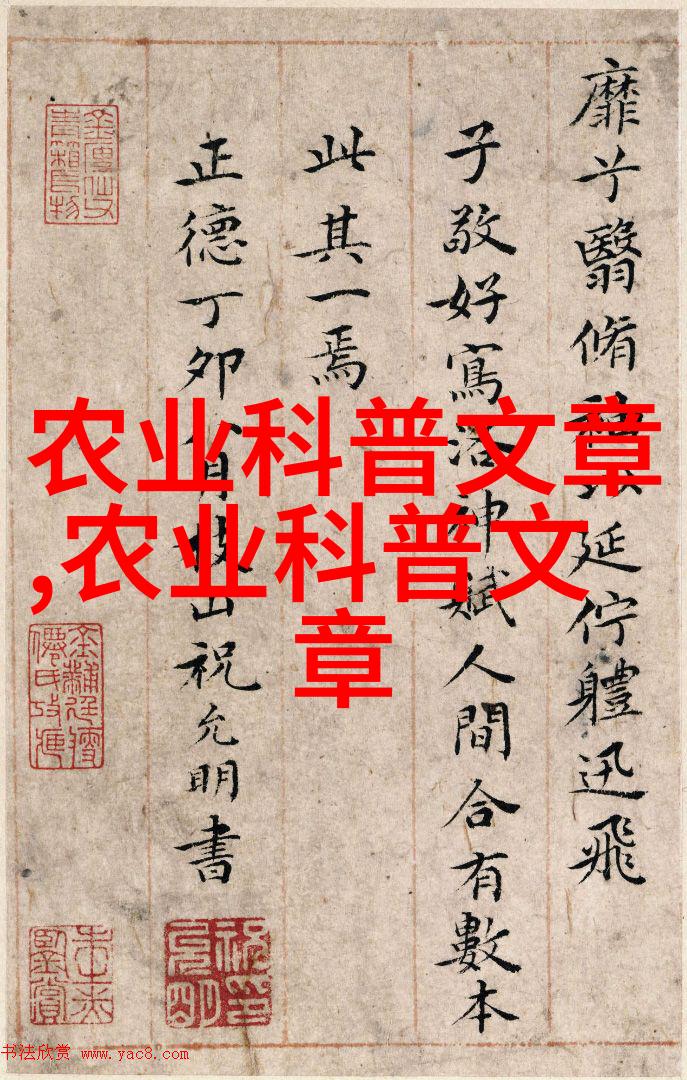 靡兮翳脩袖以延佇體迅飛
子敬好寫洛神賦人間合有數本
此其一焉
正德丁卯八月枝山祝允明書
农业科普文章
,农业科普文
章
书法欣赏 www.yac8.com